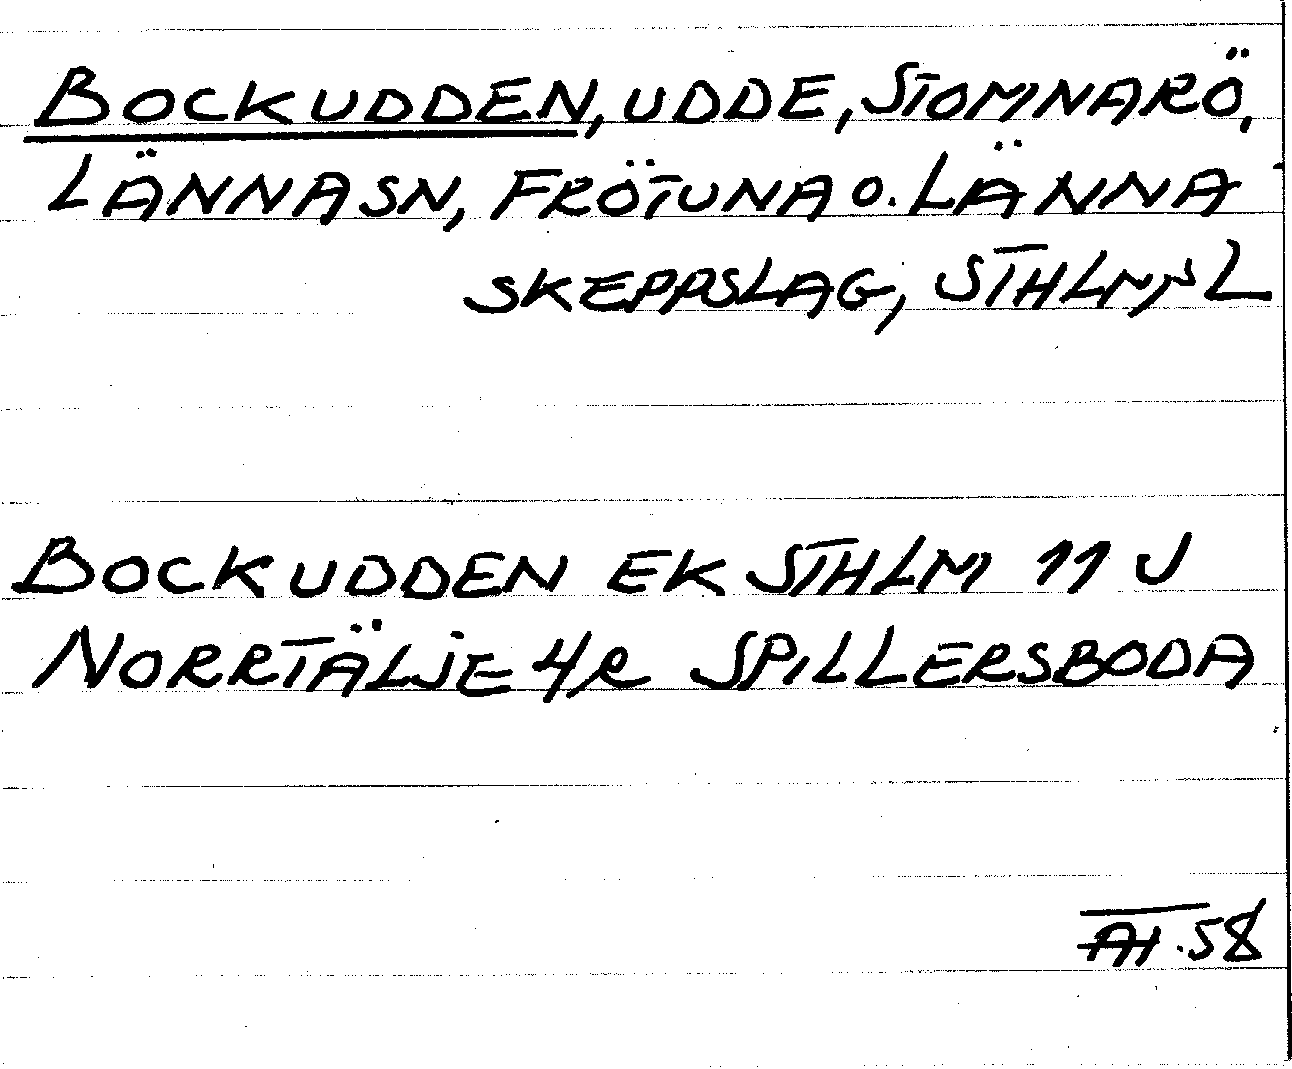 BOCKUDDEN, UDDE, STOMNARÖ,
LÄNNA SN, FRÖTUNA O. LÄNNA
SKEPPSLAG, STHLMS L
BOCKUDDEN EK STHLM 11 J
NORRTÄLJE 4/R SPILLERSBODA
AH.58